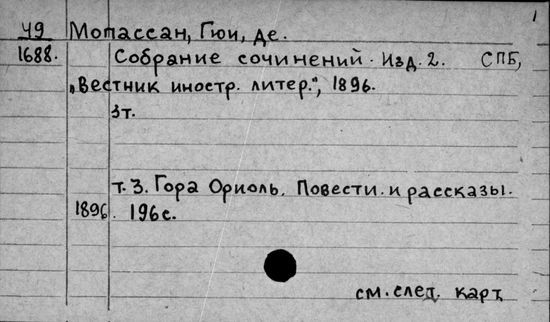 1
49 Мопассан, Гюи, де.
1688. Собрание сочинений. Изд. 2. СПБ,
„Вестник иностр. литер.", 1896.
3т.
т. 3. Гора Ориоль. Повести. и рассказы.
1896. 196с.
см. след. карт